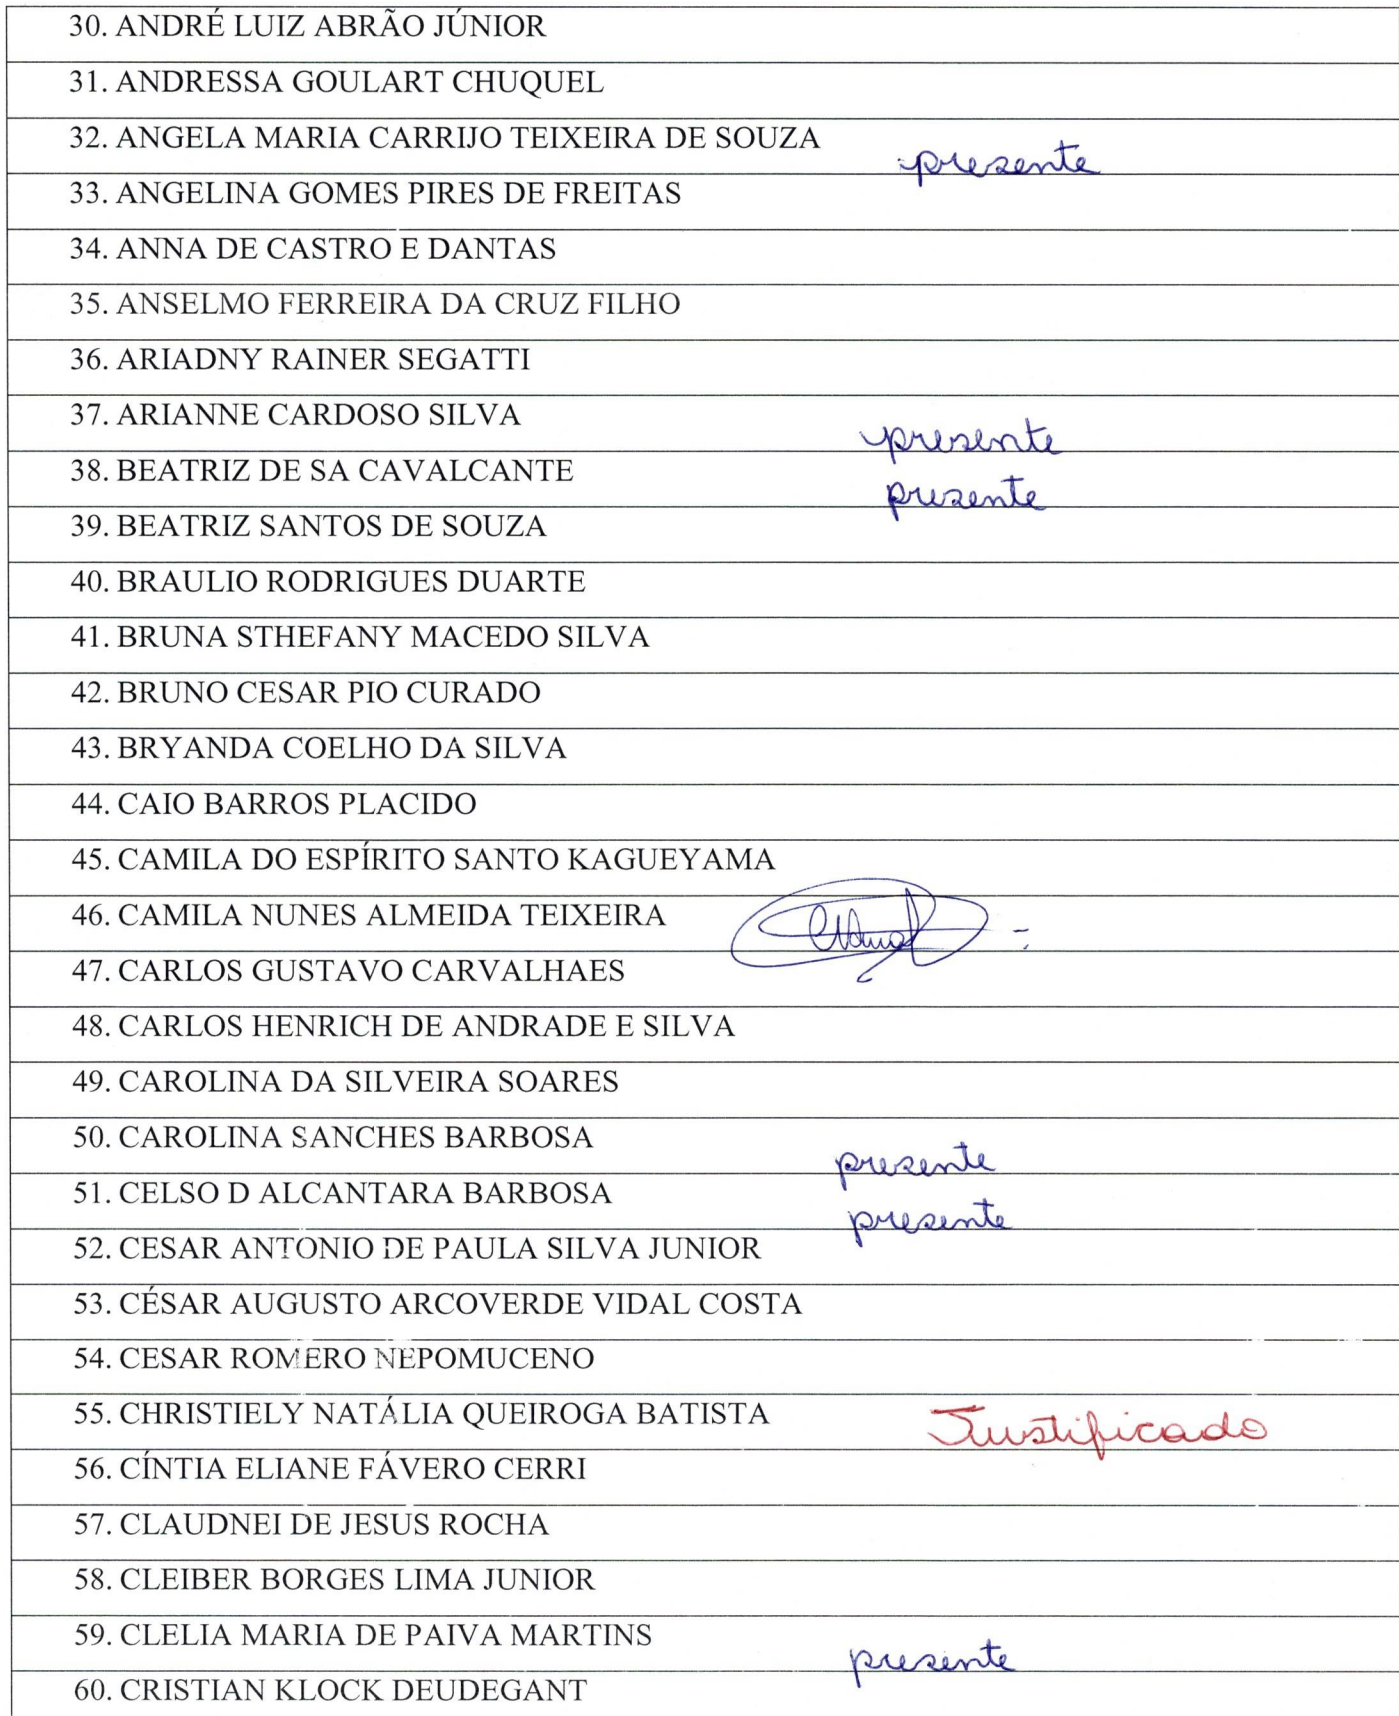 30. ANDRÉ LUIZ ABRÃO JÚNIOR
31. ANDRESSA GOULART CHUQUEL
32. ANGELA MARIA CARRIJO TEIXEIRA DE SOUZA presente
33. ANGELINA GOMES PIRES DE FREITAS
34. ANNA DE CASTRO E DANTAS
35. ANSELMO FERREIRA DA CRUZ FILHO
36. ARIADNY RAINER SEGATTI
37. ARIANNE CARDOSO SILVA presente
38. BEATRIZ DE SA CAVALCANTE presente
39. BEATRIZ SANTOS DE SOUZA
40. BRAULIO RODRIGUES DUARTE
41. BRUNA STHEFANY MACEDO SILVA
42. BRUNO CESAR PIO CURADO
43. BRYANDA COELHO DA SILVA
44. CAIO BARROS PLACIDO
45. CAMILA DO ESPÍRITO SANTO KAGUEYAMA
46. CAMILA NUNES ALMEIDA TEIXEIRA
47. CARLOS GUSTAVO CARVALHAES
48. CARLOS HENRICH DE ANDRADE E SILVA
49. CAROLINA DA SILVEIRA SOARES
50. CAROLINA SANCHES BARBOSA presente
51. CELSO D ALCANTARA BARBOSA presente
52. CESAR ANTONIO DE PAULA SILVA JUNIOR
53. CÉSAR AUGUSTO ARCOVERDE VIDAL COSTA
54. CESAR ROMERO NEPOMUCENO
55. CHRISTIELY NATÁLIA QUEIROGA BATISTA Justificado
56. CÍNTIA ELIANE FÁVERO CERRI
57. CLAUDNEI DE JESUS ROCHA
58. CLEIBER BORGES LIMA JUNIOR
59. CLELIA MARIA DE PAIVA MARTINS presente
60. CRISTIAN KLOCK DEUDEGANT